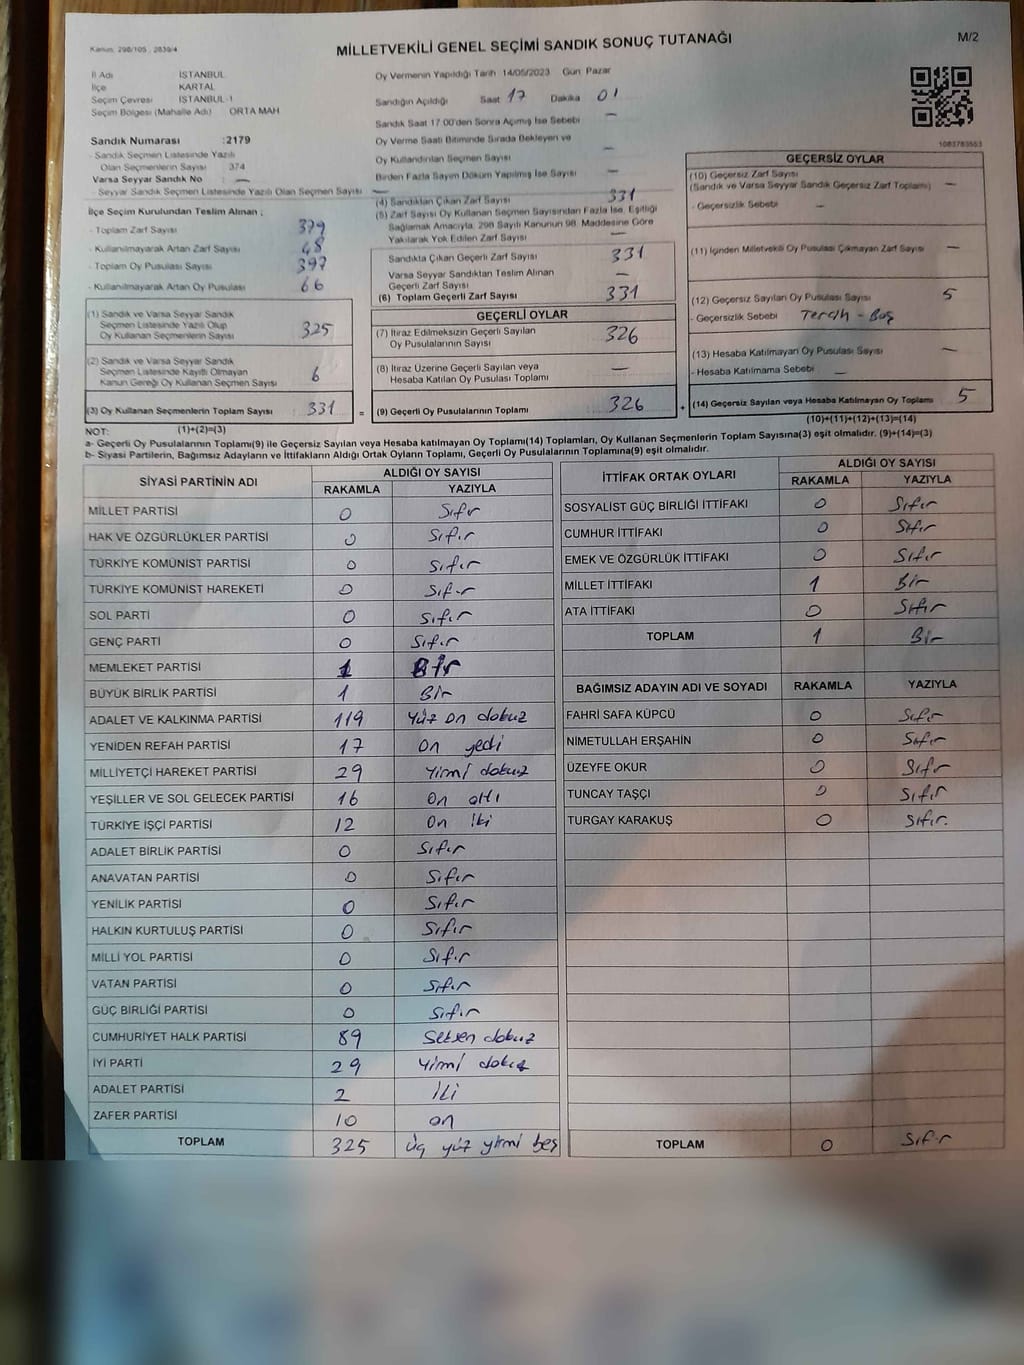 Kanun: 298/105 , 2839/4
MİLLETVEKİLİ GENEL SEÇİMİ SANDIK SONUÇ TUTANAĞI
M/2
İl Adı İSTANBUL
İlçe KARTAL
Seçim Çevresi İSTANBUL-1
Seçim Bölgesi (Mahalle Adı) ORTA MAH
Sandık Numarası :2179
- Sandık Seçmen Listesinde Yazılı
Olan Seçmenlerin Sayısı 374
Varsa Seyyar Sandık No —
- Seyyar Sandık Seçmen Listesinde Yazılı Olan Seçmen Sayısı —
İlçe Seçim Kurulundan Teslim Alınan ;
- Toplam Zarf Sayısı 379
- Kullanılmayarak Artan Zarf Sayısı 48
- Toplam Oy Pusulası Sayısı 397
- Kullanılmayarak Artan Oy Pusulası 66
(1) Sandık ve Varsa Seyyar Sandık
Seçmen Listesinde Yazılı Olup
Oy Kullanan Seçmenlerin Sayısı 325
(2) Sandık ve Varsa Seyyar Sandık
Seçmen Listesinde Kayıtlı Olmayan
Kanun Gereği Oy Kullanan Seçmen Sayısı 6
(3) Oy Kullanan Seçmenlerin Toplam Sayısı 331 =
(1)+(2)=(3)
Oy Vermenin Yapıldığı Tarih 14/05/2023 Gün Pazar
Sandığın Açıldığı Saat 17 Dakika 01
Sandık Saat 17:00'den Sonra Açılmış İse Sebebi —
Oy Verme Saati Bitiminde Sırada Bekleyen ve
Oy Kullandırılan Seçmen Sayısı —
Birden Fazla Sayım Döküm Yapılmış İse Sayısı —
(4) Sandıktan Çıkan Zarf Sayısı 331
(5) Zarf Sayısı Oy Kullanan Seçmen Sayısından Fazla İse, Eşitliği
Sağlamak Amacıyla, 298 Sayılı Kanunun 98. Maddesine Göre
Yakılarak Yok Edilen Zarf Sayısı —
Sandıkta Çıkan Geçerli Zarf Sayısı 331
Varsa Seyyar Sandıktan Teslim Alınan
Geçerli Zarf Sayısı —
(6) Toplam Geçerli Zarf Sayısı 331
GEÇERLİ OYLAR
(7) İtiraz Edilmeksizin Geçerli Sayılan
Oy Pusulalarının Sayısı 326
(8) İtiraz Üzerine Geçerli Sayılan veya
Hesaba Katılan Oy Pusulası Toplamı —
(9) Geçerli Oy Pusulalarının Toplamı 326 +
1083783553
GEÇERSİZ OYLAR
(10) Geçersiz Zarf Sayısı
(Sandık ve Varsa Seyyar Sandık Geçersiz Zarf Toplamı) —
- Geçersizlik Sebebi —
(11) İçinden Milletvekili Oy Pusulası Çıkmayan Zarf Sayısı —
(12) Geçersiz Sayılan Oy Pusulası Sayısı 5
- Geçersizlik Sebebi Tercih - Boş
(13) Hesaba Katılmayan Oy Pusulası Sayısı —
- Hesaba Katılmama Sebebi —
(14) Geçersiz Sayılan veya Hesaba Katılmayan Oy Toplamı 5
(10)+(11)+(12)+(13)=(14)
NOT:
a- Geçerli Oy Pusulalarının Toplamı(9) ile Geçersiz Sayılan veya Hesaba katılmayan Oy Toplamı(14) Toplamları, Oy Kullanan Seçmenlerin Toplam Sayısına(3) eşit olmalıdır. (9)+(14)=(3)
b- Siyasi Partilerin, Bağımsız Adayların ve İttifakların Aldığı Ortak Oyların Toplamı, Geçerli Oy Pusulalarının Toplamına(9) eşit olmalıdır.
SİYASİ PARTİNİN ADI ALDIĞI OY SAYISI
RAKAMLA YAZIYLA
MİLLET PARTİSİ 0 Sıfır
HAK VE ÖZGÜRLÜKLER PARTİSİ 0 Sıfır
TÜRKİYE KOMÜNİST PARTİSİ 0 Sıfır
TÜRKİYE KOMÜNİST HAREKETİ 0 Sıfır
SOL PARTİ 0 Sıfır
GENÇ PARTİ 0 Sıfır
MEMLEKET PARTİSİ 1 Bir
BÜYÜK BİRLİK PARTİSİ 1 Bir
ADALET VE KALKINMA PARTİSİ 119 Yüz on dokuz
YENİDEN REFAH PARTİSİ 17 On yedi
MİLLİYETÇİ HAREKET PARTİSİ 29 Yirmi dokuz
YEŞİLLER VE SOL GELECEK PARTİSİ 16 On altı
TÜRKİYE İŞÇİ PARTİSİ 12 On iki
ADALET BİRLİK PARTİSİ 0 Sıfır
ANAVATAN PARTİSİ 0 Sıfır
YENİLİK PARTİSİ 0 Sıfır
HALKIN KURTULUŞ PARTİSİ 0 Sıfır
MİLLİ YOL PARTİSİ 0 Sıfır
VATAN PARTİSİ 0 Sıfır
GÜÇ BİRLİĞİ PARTİSİ 0 Sıfır
CUMHURİYET HALK PARTİSİ 89 Seksen dokuz
İYİ PARTİ 29 Yirmi dokuz
ADALET PARTİSİ 2 İki
ZAFER PARTİSİ 10 on
TOPLAM 325 üç yüz yirmi beş
İTTİFAK ORTAK OYLARI ALDIĞI OY SAYISI
RAKAMLA YAZIYLA
SOSYALİST GÜÇ BİRLİĞİ İTTİFAKI 0 Sıfır
CUMHUR İTTİFAKI 0 Sıfır
EMEK VE ÖZGÜRLÜK İTTİFAKI 0 Sıfır
MİLLET İTTİFAKI 1 Bir
ATA İTTİFAKI 0 Sıfır
TOPLAM 1 Bir
BAĞIMSIZ ADAYIN ADI VE SOYADI RAKAMLA YAZIYLA
FAHRİ SAFA KÜPCÜ 0 Sıfır
NİMETULLAH ERŞAHİN 0 Sıfır
ÜZEYFE OKUR 0 Sıfır
TUNCAY TAŞÇI 0 Sıfır
TURGAY KARAKUŞ 0 Sıfır.
TOPLAM 0 Sıfır